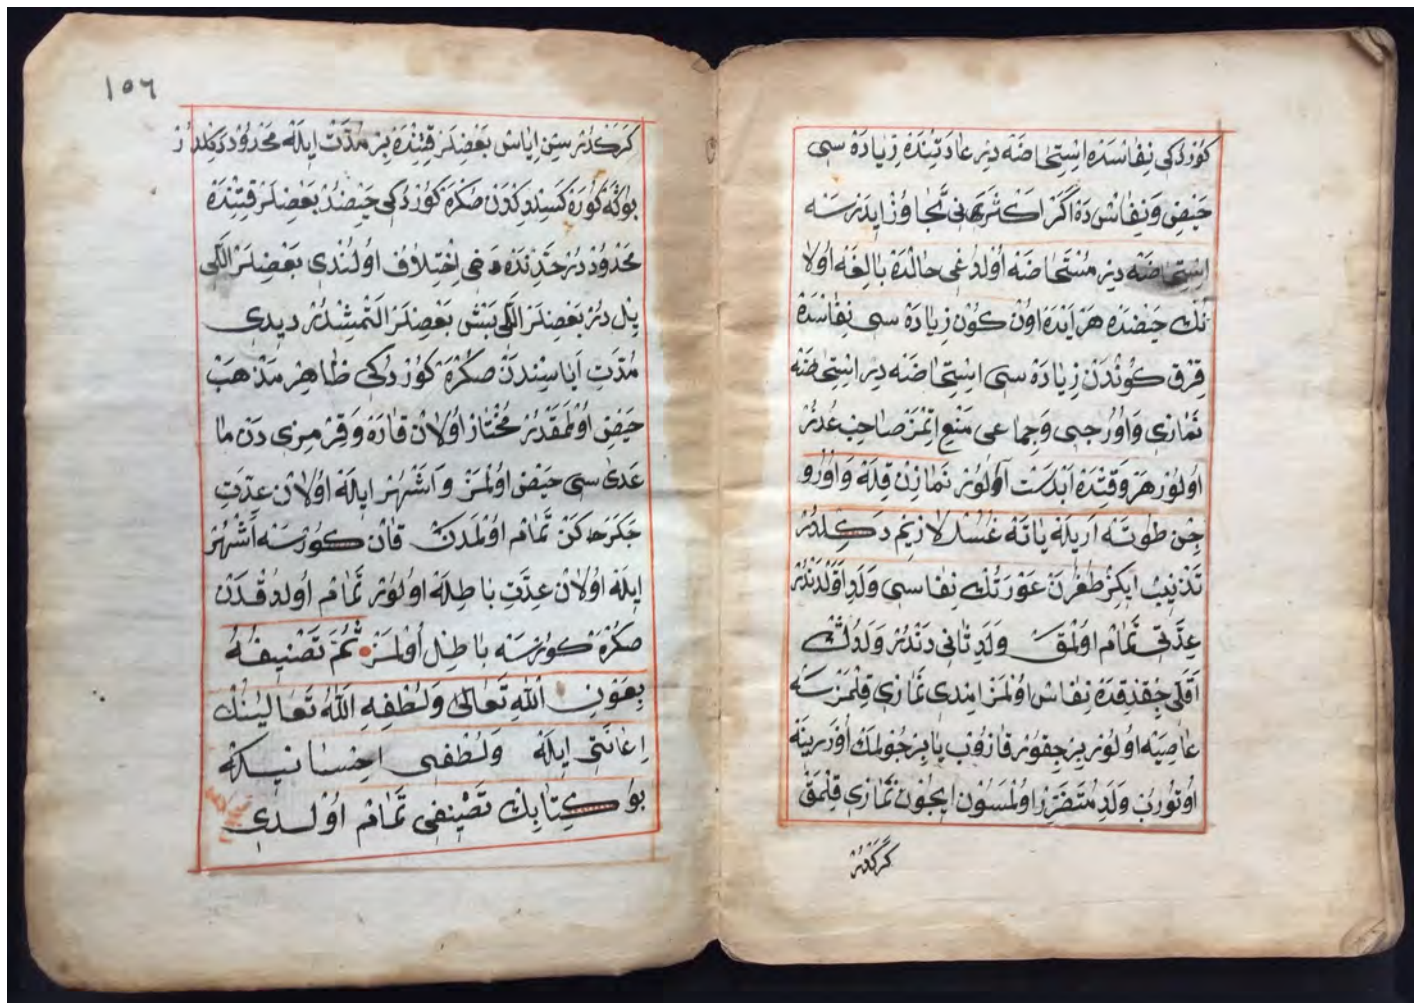 كوزدكی نفاسده استحاضه دیر عادتنده زیاده سی
حیض ونفاس ده اگر اكثرهنی تجاوز ایدرسه
استحاضه دیر مستحاضه اولدغی حالده بالغه اولا
نك حیضده هر آیده اون كون زیاده سی نفاسده
قرق كوندن زیاده سی استحاضه دیر استحاضه
نمازی واورجی وجماعی منع اتمز صاحب عذر
اولور هر وقتده ابدست آلور نمازن قله واورو
جن طوته اریله یاته غسل لازیم دكلدر
تذنیب ایكز طغرن عورتك نفاسی ولد اولدندر
عدتی تمام اولمق ولد ثانی دندر ولدك
اقلی چقدقده نفاس اولمز امدی نمازی قلمزسه
عاصیه اولور بر چقور قازوب یا بر چولمك اوزرینه
اوتورب ولد متضرر اولمسون ایچون نمازی قلمق
كركدر
١٥٦
كركدر سن ایاس بعضلر قتنده بر مدت ایله محدود دكلدر
بوكه كوره كسیلدكدن صكره كوردكی حیضدر بعضلر قتنده
محدوددر حدنده دخی اختلاف اولندی بعضلر اللی
ییل در بعضلر اللی بش بعضلر التمشدر دیدی
مدت ایاسندن صكره كوردكی ظاهر مذهب
حیض اولمقدر مختار اولان قاره وقرمزی دن ما
عدی سی حیض اولمز واشهر ایله اولان عدت
چكرهكن تمام اولمدن قان كورسه اشهر
ایله اولان عدت باطله اولور تمام اولدقدن
صكره كورسه باطل اولمز ثم تصنیفه
بعون الله تعالی ولطفه الله تعالینك
اعانتی ایله ولطفی احسانیله
بو كتابك تصنیفی تمام اولدی